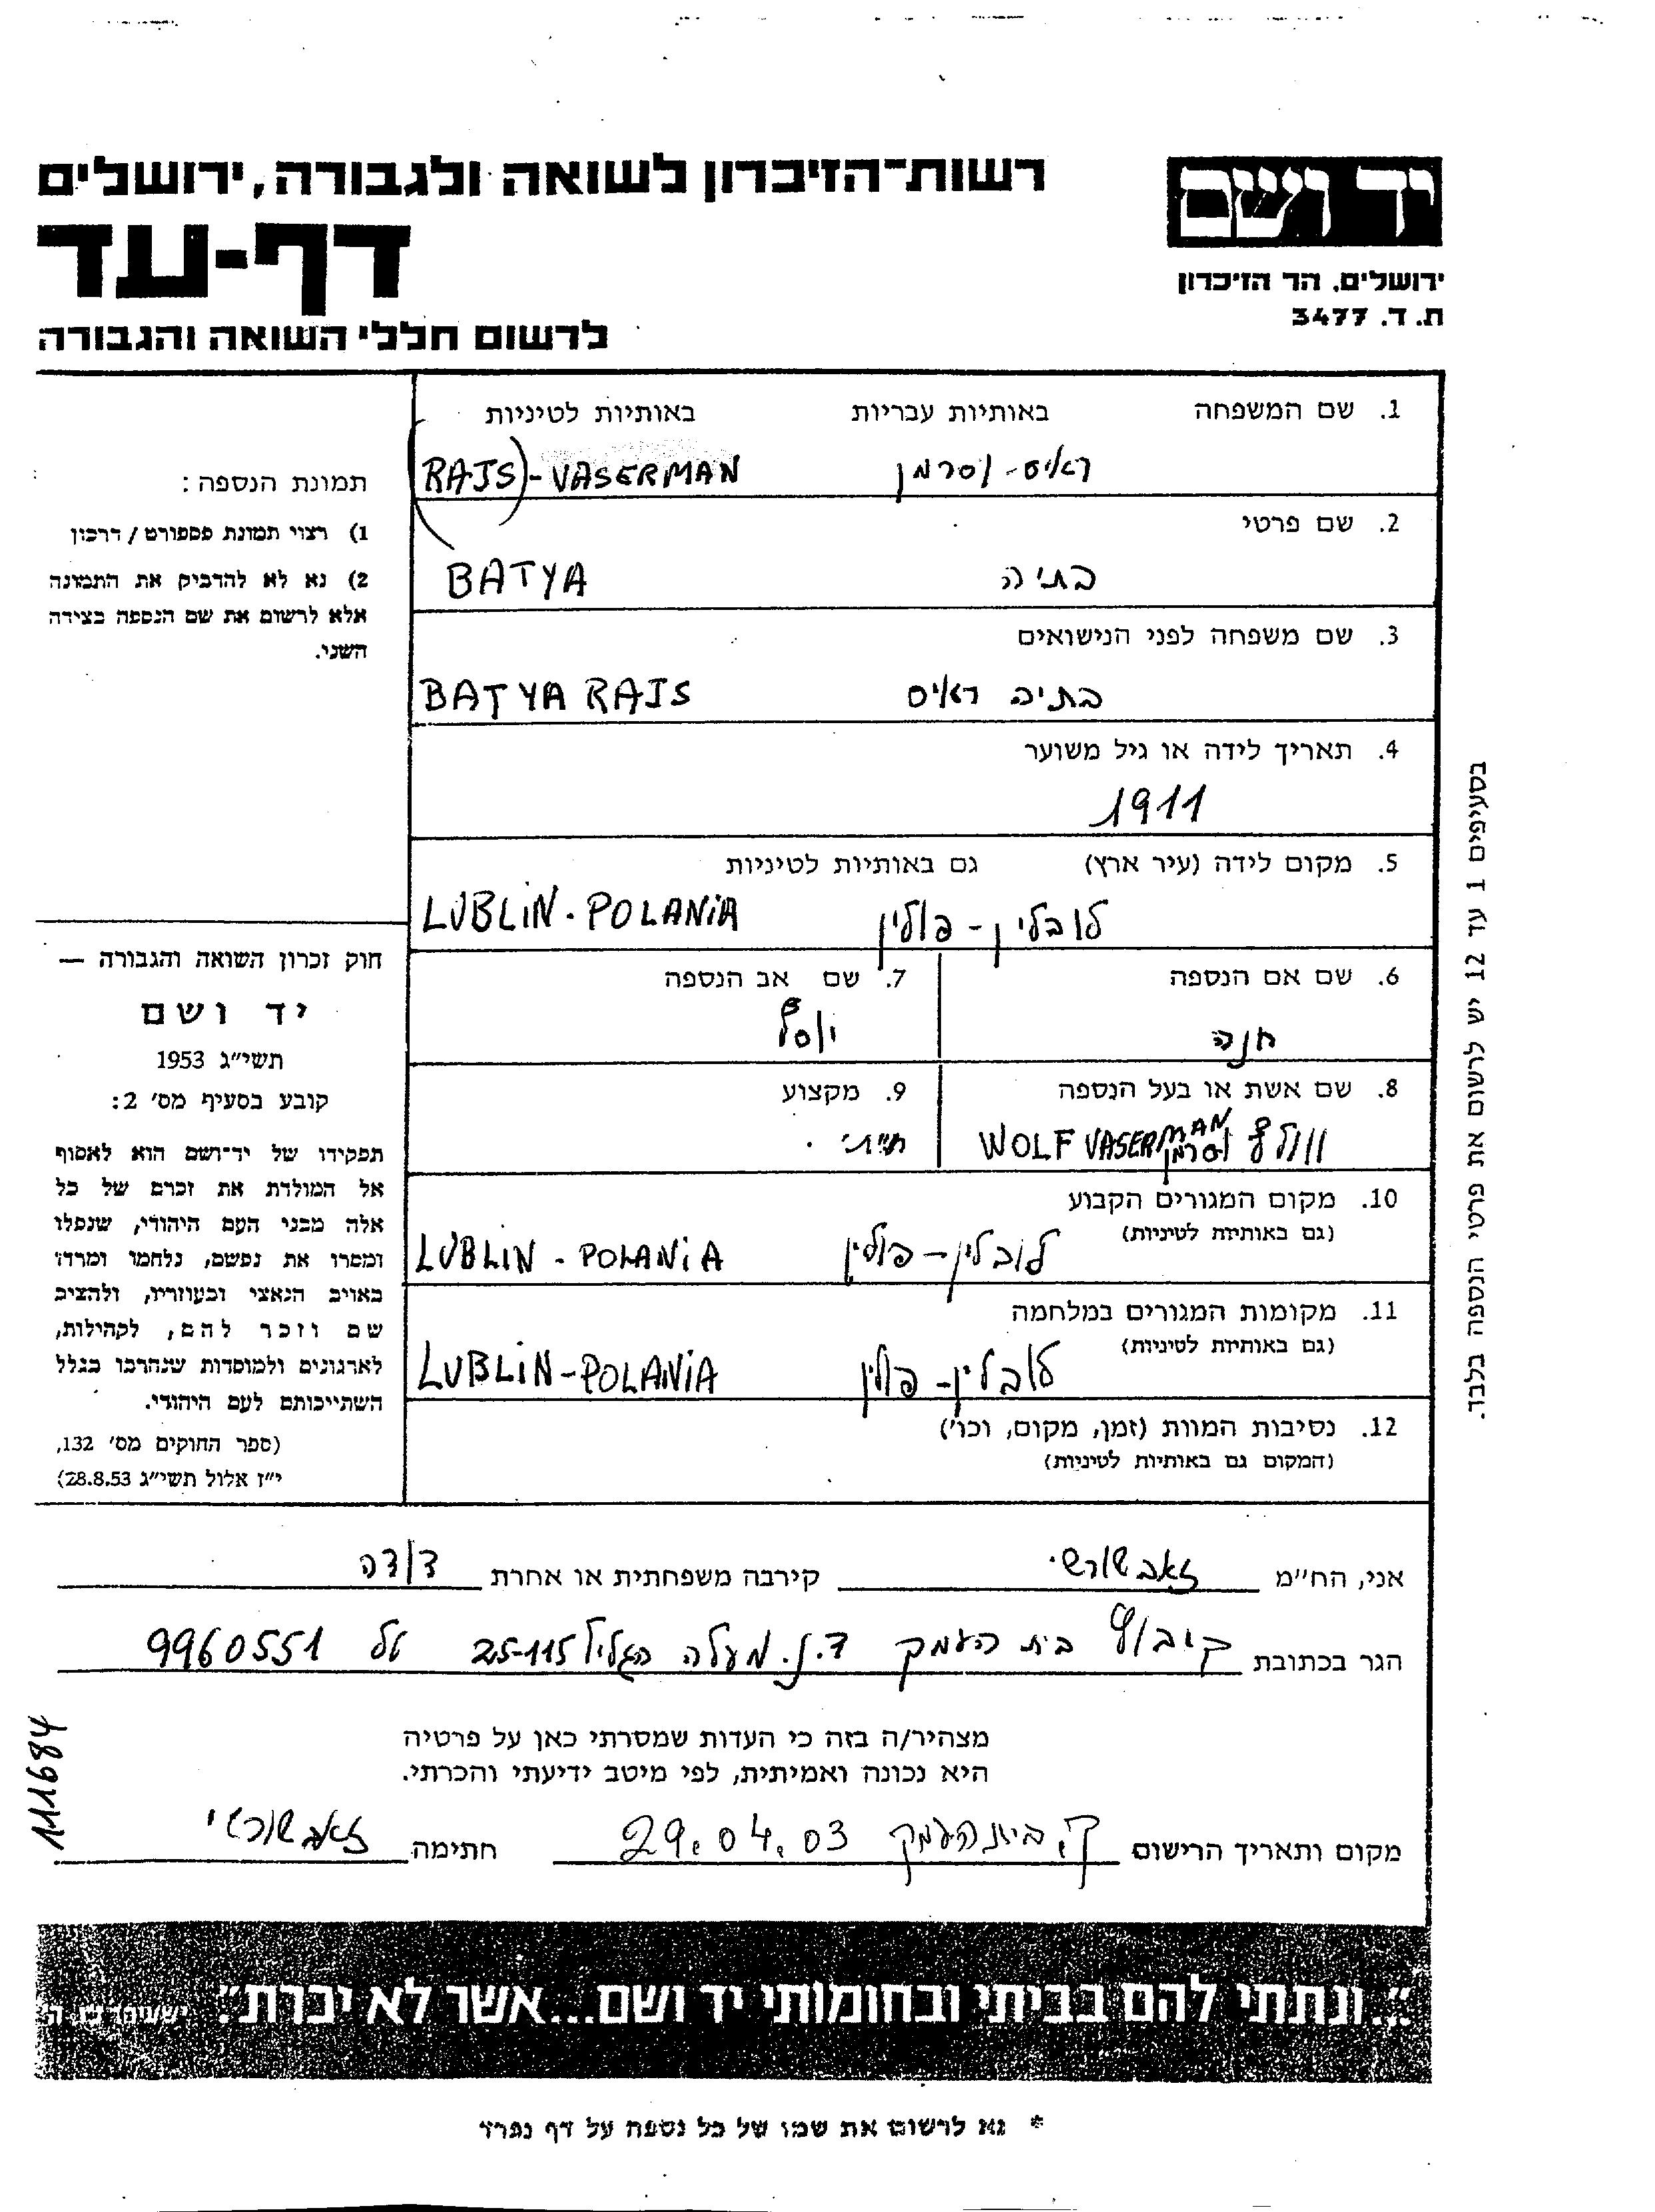 רשות־הזיכרון לשואה ולגבורה, ירושלים
דף-עד
לרשום חללי השואה והגבורה
יד ושם
ירושלים, הר הזיכרון
ת. ד. 3477
1. שם המשפחה באותיות עבריות באותיות לטיניות
ראיס - וסרמן (RAJS) - VASERMAN
2. שם פרטי
בתיה BATYA
3. שם משפחה לפני הנישואים
בתיה ראיס BATYA RAJS
4. תאריך לידה או גיל משוער
1911
5. מקום לידה (עיר ארץ) גם באותיות לטיניות
לובלין - פולין LUBLIN - POLANIA
6. שם אם הנספה
חנה
7. שם אב הנספה
יוסף
8. שם אשת או בעל הנספה
וולף וסרמן WOLF VASERMAN
9. מקצוע
10. מקום המגורים הקבוע
(גם באותיות לטיניות)
לובלין - פולין LUBLIN - POLANIA
11. מקומות המגורים במלחמה
(גם באותיות לטיניות)
לובלין - פולין LUBLIN - POLANIA
12. נסיבות המוות (זמן, מקום, וכו')
(המקום גם באותיות לטיניות)
תמונת הנספה:
1) רצוי תמונת פספורט / דרכון
2) נא לא להדביק את התמונה
אלא לרשום את שם הנספה בצידה
השני.
חוק זכרון השואה והגבורה —
יד ושם
תשי״ג 1953
קובע בסעיף מס׳ 2:
תפקידו של יד־ושם הוא לאסוף
אל המולדת את זכרם של כל
אלה מבני העם היהודי, שנפלו
ומסרו את נפשם, נלחמו ומרדו
באויב הנאצי ובעוזריו, ולהציב
שם וזכר להם, לקהילות,
לארגונים ולמוסדות שנהרבו בגלל
השתייכותם לעם היהודי.
(ספר החוקים מס׳ 132,
י״ז אלול תשי״ג 28.8.53)
בסעיפים 1 עד 12 יש לרשום את פרטי הנספה בלבד.
אני, הח״מ זאב שורשי קירבה משפחתית או אחרת דודה
הגר בכתובת קיבוץ בית העמק ד.נ. מעלה הגליל 25-115 טל 9960551
מצהיר/ה בזה כי העדות שמסרתי כאן על פרטיה
היא נכונה ואמיתית, לפי מיטב ידיעתי והכרתי.
מקום ותאריך הרישום ק. בית העמק 29.04.03 חתימה זאב שורשי
111684
״...ונתתי להם בביתי ובחומותי יד ושם...אשר לא יכרת״. ישעיהו נו, ה
* נא לרשום את שמו של כל נספה על דף נפרד